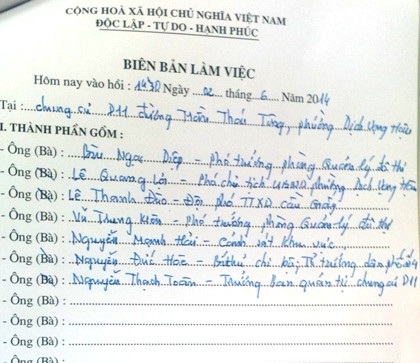 CỘNG HOÀ XÃ HỘI CHỦ NGHĨA VIỆT NAM
ĐỘC LẬP - TỰ DO - HẠNH PHÚC
BIÊN BẢN LÀM VIỆC
Hôm nay vào hồi : 14h30 Ngày 02 tháng 6 Năm 2014
Tại : chung cư D11 đường Trần Thái Tông, phường Dịch Vọng Hậu
I. THÀNH PHẦN GỒM :
- Ông (Bà) : Ngọc Diệp - Phó trưởng phòng Quản lý đô thị
- Ông (Bà) : Lê Quang Lợi - Phó chủ tịch UBND phường Dịch Vọng Hậu
- Ông (Bà) : Lê Thanh Đào - Đội phó TTXD Cầu Giấy
- Ông (Bà) : Vũ Trung Kiên - Phó trưởng phòng Quản lý đô thị
- Ông (Bà) : Nguyễn Mạnh Hải - Cảnh sát khu vực
- Ông (Bà) : Nguyễn Đức - Bí thư chi bộ; Tổ trưởng dân phố
- Ông (Bà) : Nguyễn Thạch Toàn - Trưởng ban quản trị chung cư D11
- Ông (Bà) :
- Ông (Bà) :
- Ông (Bà) :
- Ông (Bà) :